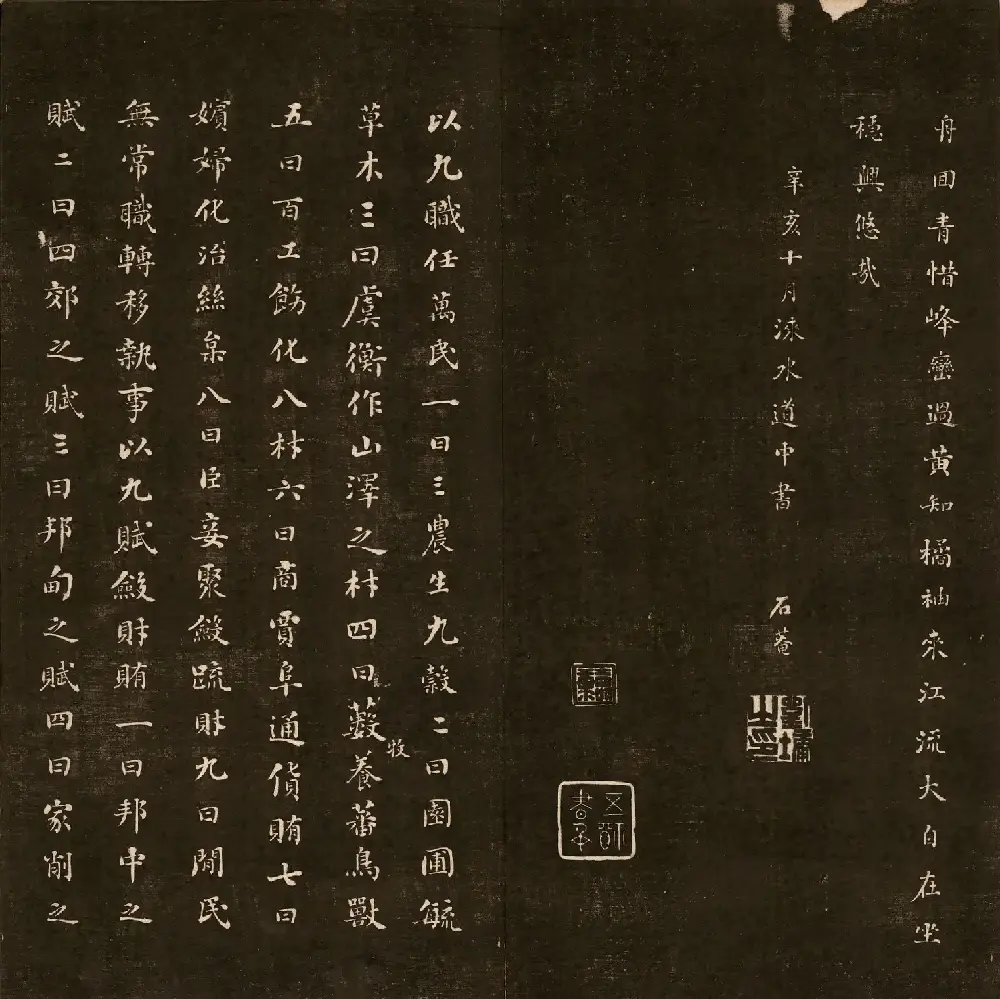 舟回青惜峰巒過黃知橘袖來江流大自在坐
穩興悠哉
辛亥十月淶水道中書 石菴
劉墉之印
以九職任萬民一曰三農生九穀二曰園圃毓
草木三曰虞衡作山澤之材四曰藪牧養蕃鳥獸
五曰百工飭化八材六曰商賈阜通貨賄七曰
嬪婦化治絲枲八曰臣妾聚斂疏財九曰閒民
無常職轉移執事以九賦斂財賄一曰邦中之
賦二曰四郊之賦三曰邦甸之賦四曰家削之